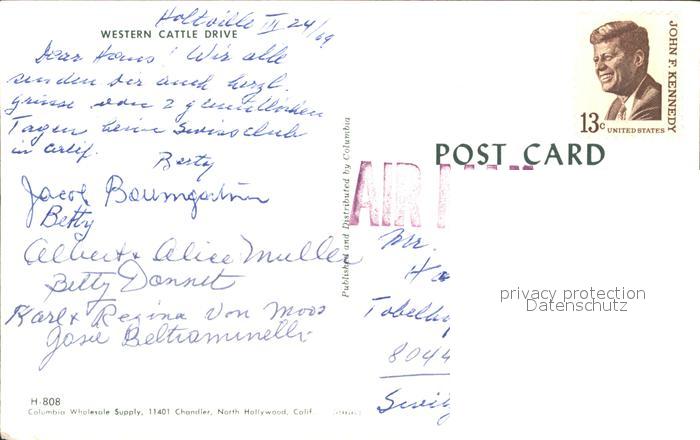 Holtville III 24/69
WESTERN CATTLE DRIVE
Dear Hans! Wir alle
senden Dir auch herzl.
Grüsse von 2 gemütlichen
Tagen beim Swissclub
in Calif.
Berty
Jacob Baumgartner
Betty
Albert & Alice Muller
Betty Donnet
Karl & Regina Von Moos
Josie Beltraminelli
H-808
Columbia Wholesale Supply, 11401 Chandler, North Hollywood, Calif.
Published and Distributed by Columbia
JOHN F. KENNEDY
13c UNITED STATES
POST CARD
AIR
Mr.
8044
privacy protection
Datenschutz